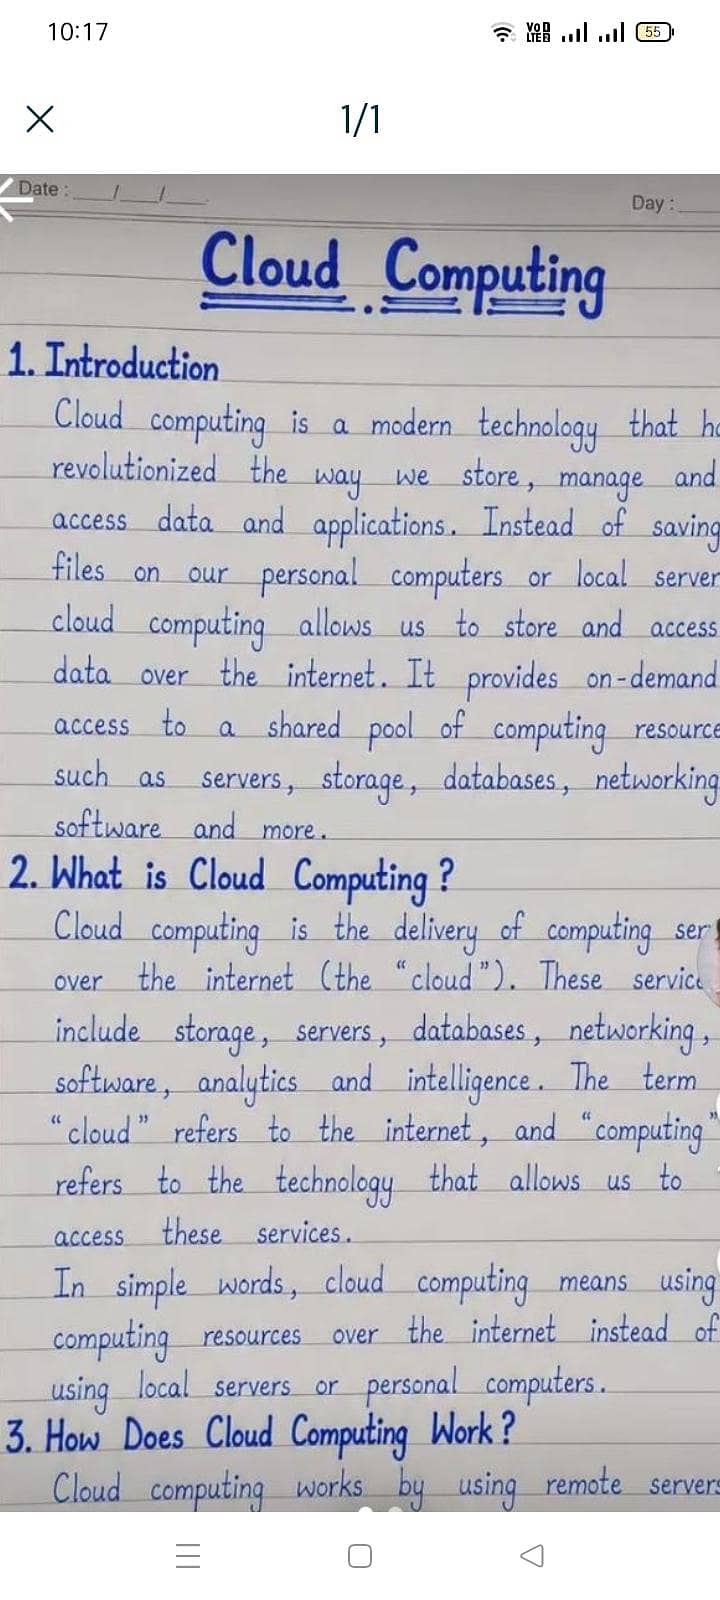 10:17
VoD LTE 55
1/1
Date : __/__/__
Day :
Cloud Computing
1. Introduction
Cloud computing is a modern technology that
revolutionized the way we store, manage and
access data and applications. Instead of saving
files on our personal computers or local server
cloud computing allows us to store and access
data over the internet. It provides on-demand
access to a shared pool of computing resource
such as servers, storage, databases, networking
software and more.
2. What is Cloud Computing ?
Cloud computing is the delivery of computing ser
over the internet (the “cloud”). These servic
include storage, servers, databases, networking,
software, analytics and intelligence. The term
“cloud” refers to the internet, and “computing”
refers to the technology that allows us to
access these services.
In simple words, cloud computing means using
computing resources over the internet instead of
using local servers or personal computers.
3. How Does Cloud Computing Work ?
Cloud computing works by using remote servers